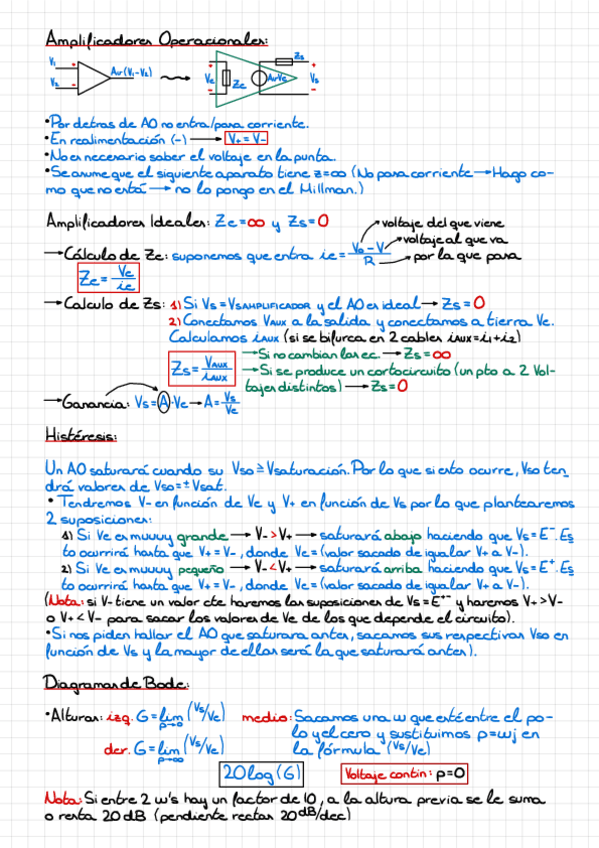 Amplificadores Operacionales:
V₁ - Av(V₁-V₂) V₂ +
Ve Ze AvVe Zs Vs
•Por detras de AO no entra/pasa corriente.
•En realimentación (-) → V+ = V-
•No es necesario saber el voltaje en la punta.
•Se asume que el siguiente aparato tiene z=∞ (No pasa corriente → Hago co-
mo que no está → no lo pongo en el Millman.)
Amplificadores Ideales: Ze=∞ y Zs=0
voltaje del que viene
voltaje al que va
→ Cálculo de Ze: suponemos que entra ie = V₀-V/R → por la que pasa
Ze = Ve/ie
→ Calculo de Zs: 1) Si Vs = VSAMPLIFICADOR y el AO es ideal → Zs = 0
2) Conectamos VAUX a la salida y conectamos a tierra Ve.
Calculamos iAUX (si se bifurca en 2 cables iAUX=i₁+i₂)
Zs = VAUX/iAUX → Si no cambian las ec. → Zs = ∞
→ Si se produce un cortocircuito (un pto a 2 Vol-
tajes distintos) → Zs = 0
→ Ganancia: Vs = A·Ve → A = Vs/Ve
Histéresis:
Un AO saturará cuando su Vso ≥ Vsaturación. Por lo que si esto ocurre, Vso ten_
drá valores de Vso=±Vsat.
• Tendremos V- en función de Ve y V+ en función de Vs por lo que plantearemos
2 suposiciones:
1) Si Ve es muuuy grande → V- > V+ → saturará abajo haciendo que Vs = E⁻. Es
to ocurrirá hasta que V+ = V-, donde Ve = (valor sacado de igualar V+ a V-).
2) Si Ve es muuuy pequeño → V- < V+ → saturará arriba haciendo que Vs = E⁺. Es
to ocurrirá hasta que V+ = V-, donde Ve = (valor sacado de igualar V+ a V-).
(Nota: si V- tiene un valor cte haremos las suposiciones de Vs = E⁺⁻ y haremos V+ > V-
o V+ < V- para sacar los valores de Ve de los que depende el circuito).
•Si nos piden hallar el AO que saturara antes, sacamos sus respectivas Vso en
función de Vs y la mayor de ellas será la que saturará antes).
Diagramas de Bode:
•Alturas: izq. G = lim p→0 (Vs/Ve) medio: Sacamos una w que esté entre el po-
lo y el cero y sustituimos p=wj en
der. G = lim p→∞ (Vs/Ve) la fórmula (Vs/Ve)
20log(G) Voltaje contin: p=0
Nota: Si entre 2 w's hay un factor de 10, a la altura previa se le suma
o resta 20dB (pendiente rectas 20dB/dec)